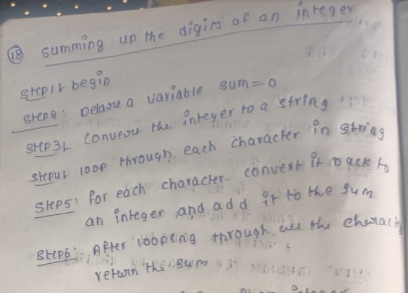 (18) summing up the digits of an integer
Step1: begin
Step2: Delare a variable sum=0
Step3: Convert the integer to a string
Step4: loop through each character in string
Step5: for each character. convert it back to
an integer and add it to the sum
Step6: After looping through all the charact
return the sum